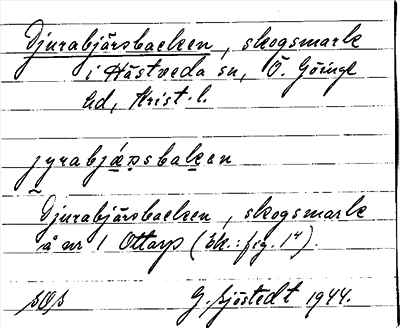 Djurabjärsbacken, skogsmark
i Hästveda sn, Ö. Göinge
hd, Krist. l.
jyrabjæ̠ṛsbak̠en
Djurabjärsbacken, skogsmark
å nr 1 Ottarp (Ek.: fig. 1⁴).
G. Sjöstedt 1944.